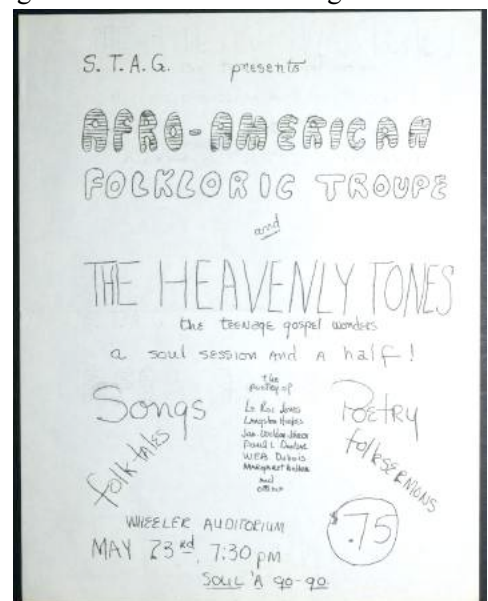 S. T. A. G. presents
AFRO-AMERICAN
FOLKLORIC TROUPE
and
THE HEAVENLY TONES
the teenage gospel wonders
a soul session and a half!
Songs
folk tales
the
poetry of
Le Roi Jones
Langston Hughes
James Weldon Johnson
Paul L Dunbar
WEB Dubois
Margaret Walker
and
others
Poetry
folksermons
WHEELER AUDITORIUM
MAY 23rd, 7:30 pm
$.75
SOUL 'A go-go